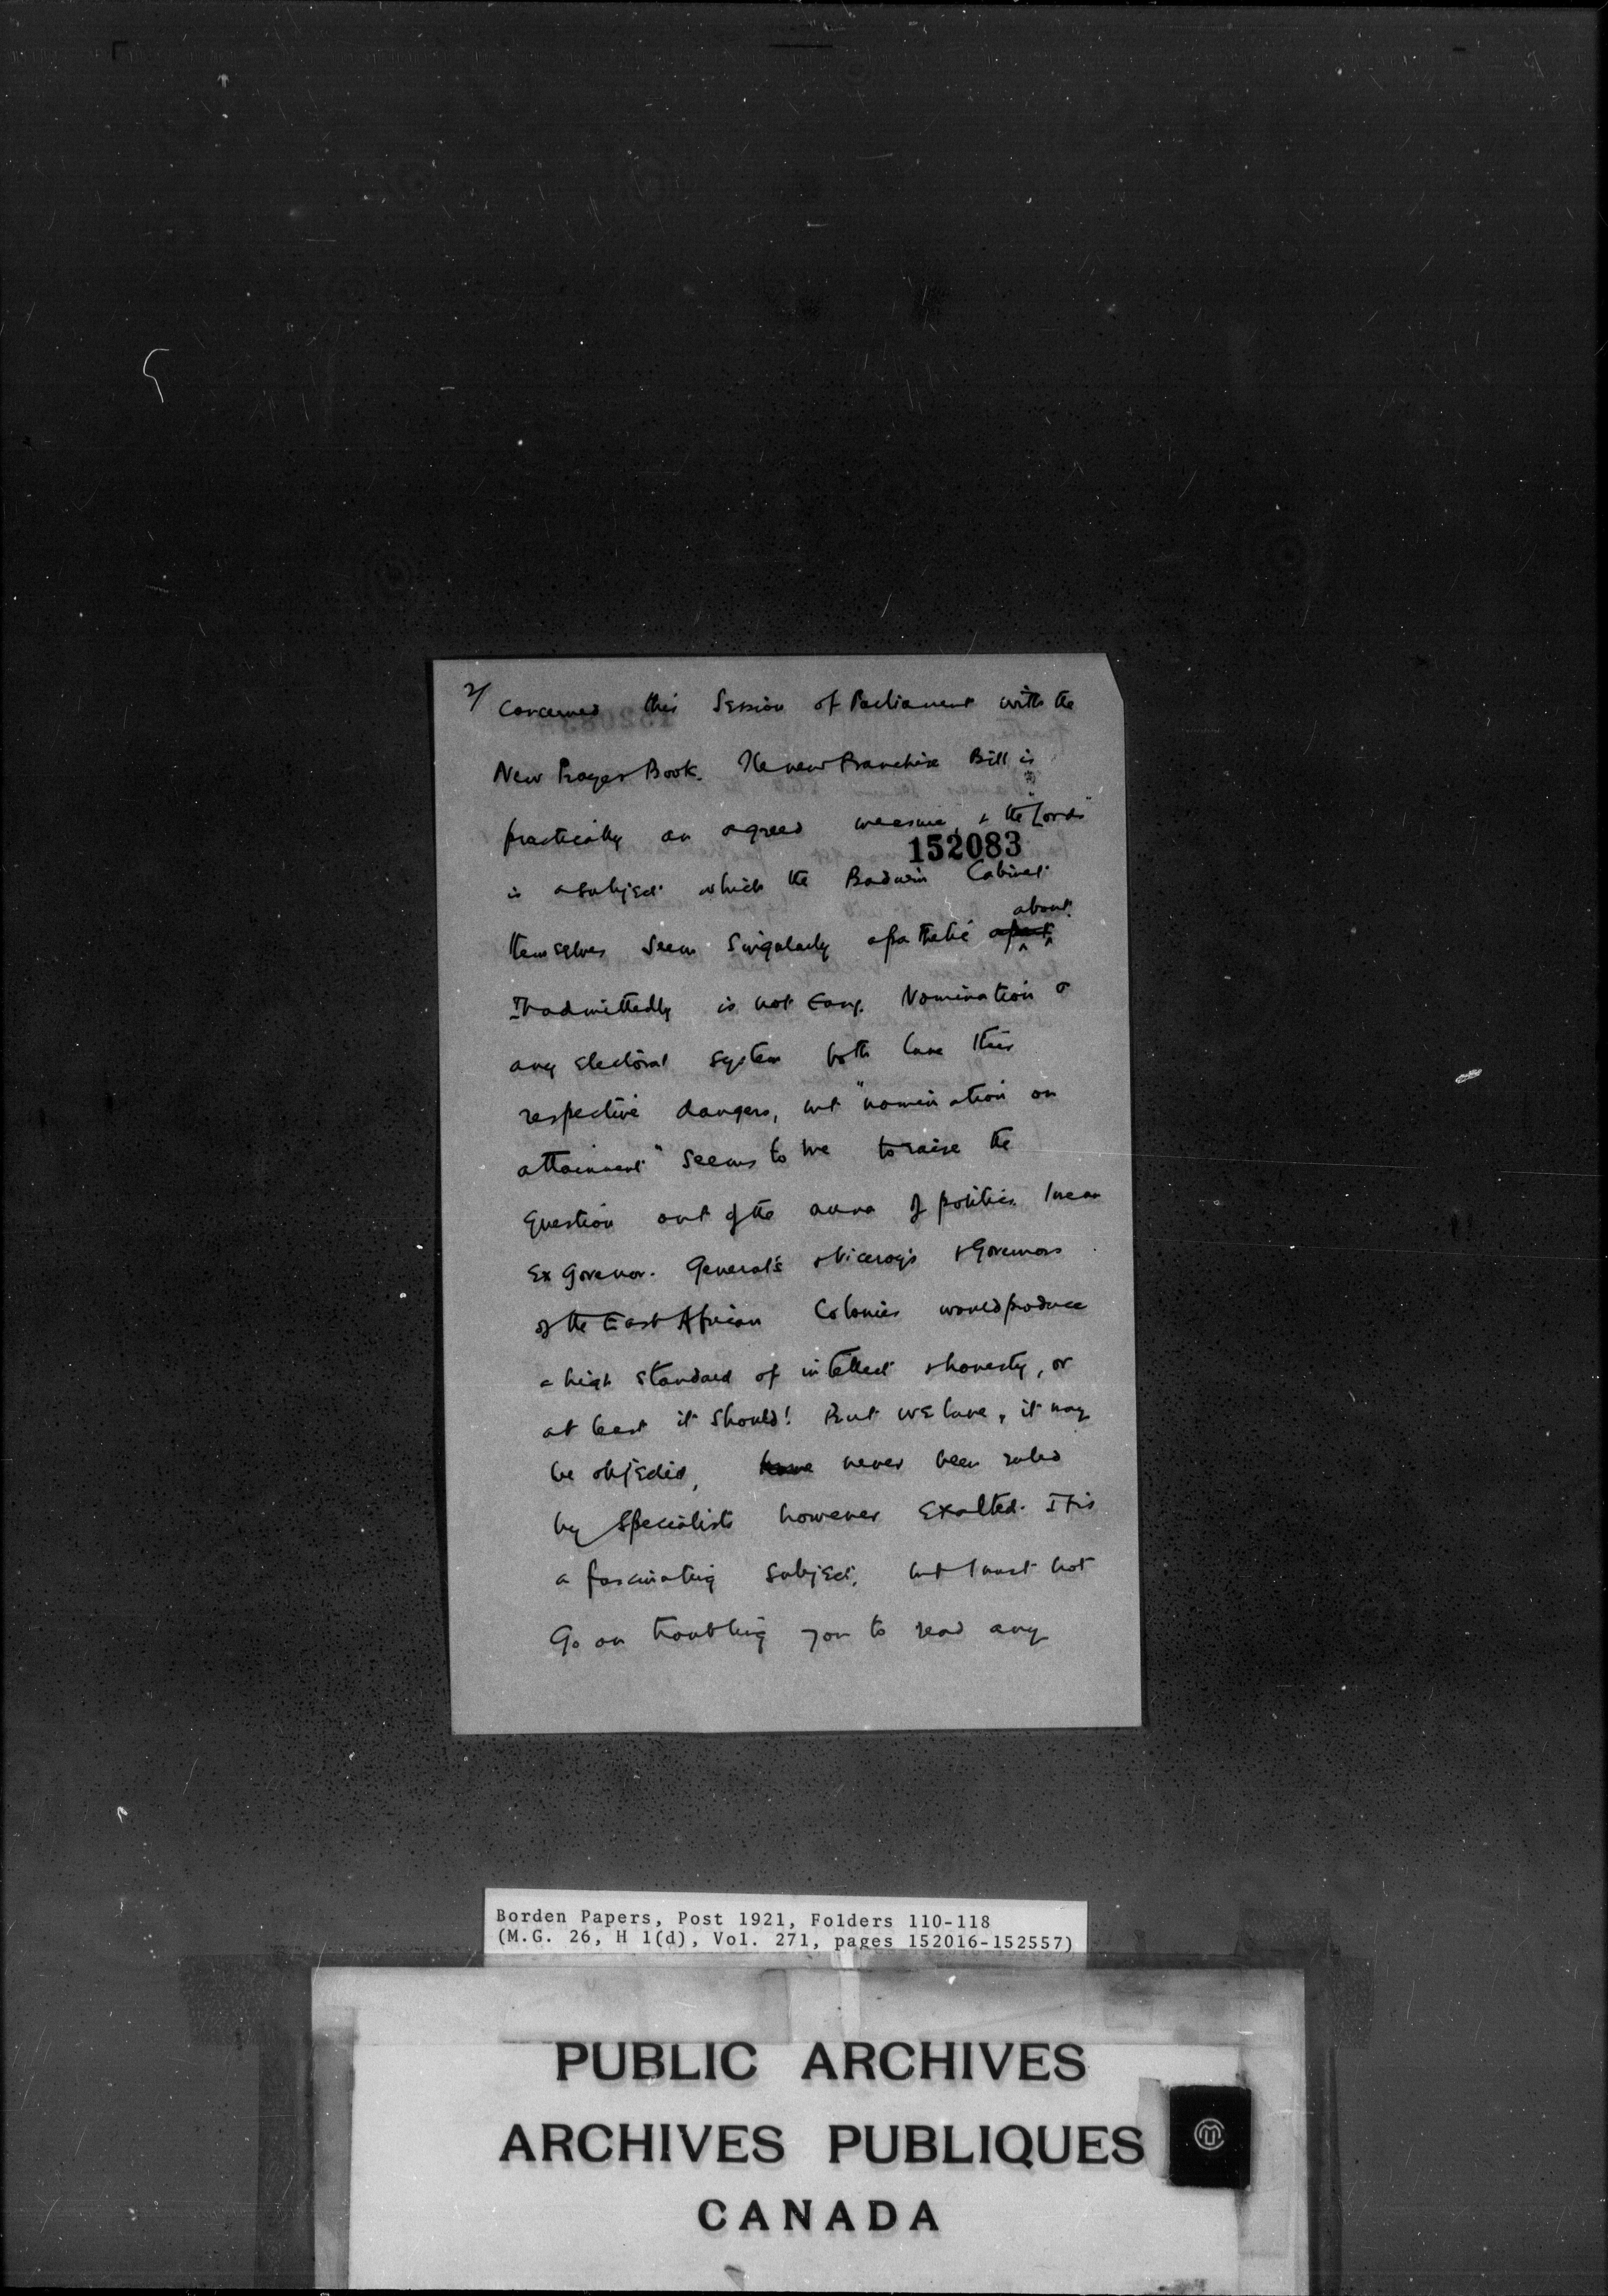 2/ Concerned this Session of Parliament with the
New Prayer Book. The new Franchise Bill is
practically an agreed measure, & the "Lords"
152083
is a subject which the Badwin Cabinet
about
themselves seem singularly apathetic
It admittedly is not Easy. Nomination or
any Electoral system both have their
respective dangers, but "nomination on
attainment" seems to me to raise the
Question out of the arena of politics. I mean
Ex Govenor. General's & Viceroy's & Governors
of the East African Colonies would produce
a high standard of intellect & honesty, or
at least it should! But we have, it may
be objected, have never been ruled
by Specialists however Exalted. It is
a fascinating subject, but I must not
Go on troubling you to read any
Borden Papers, Post 1921, Folders 110-118
(M.G. 26, H 1(d), Vol. 271, pages 152016-152557)
PUBLIC ARCHIVES
ARCHIVES PUBLIQUES
CANADA